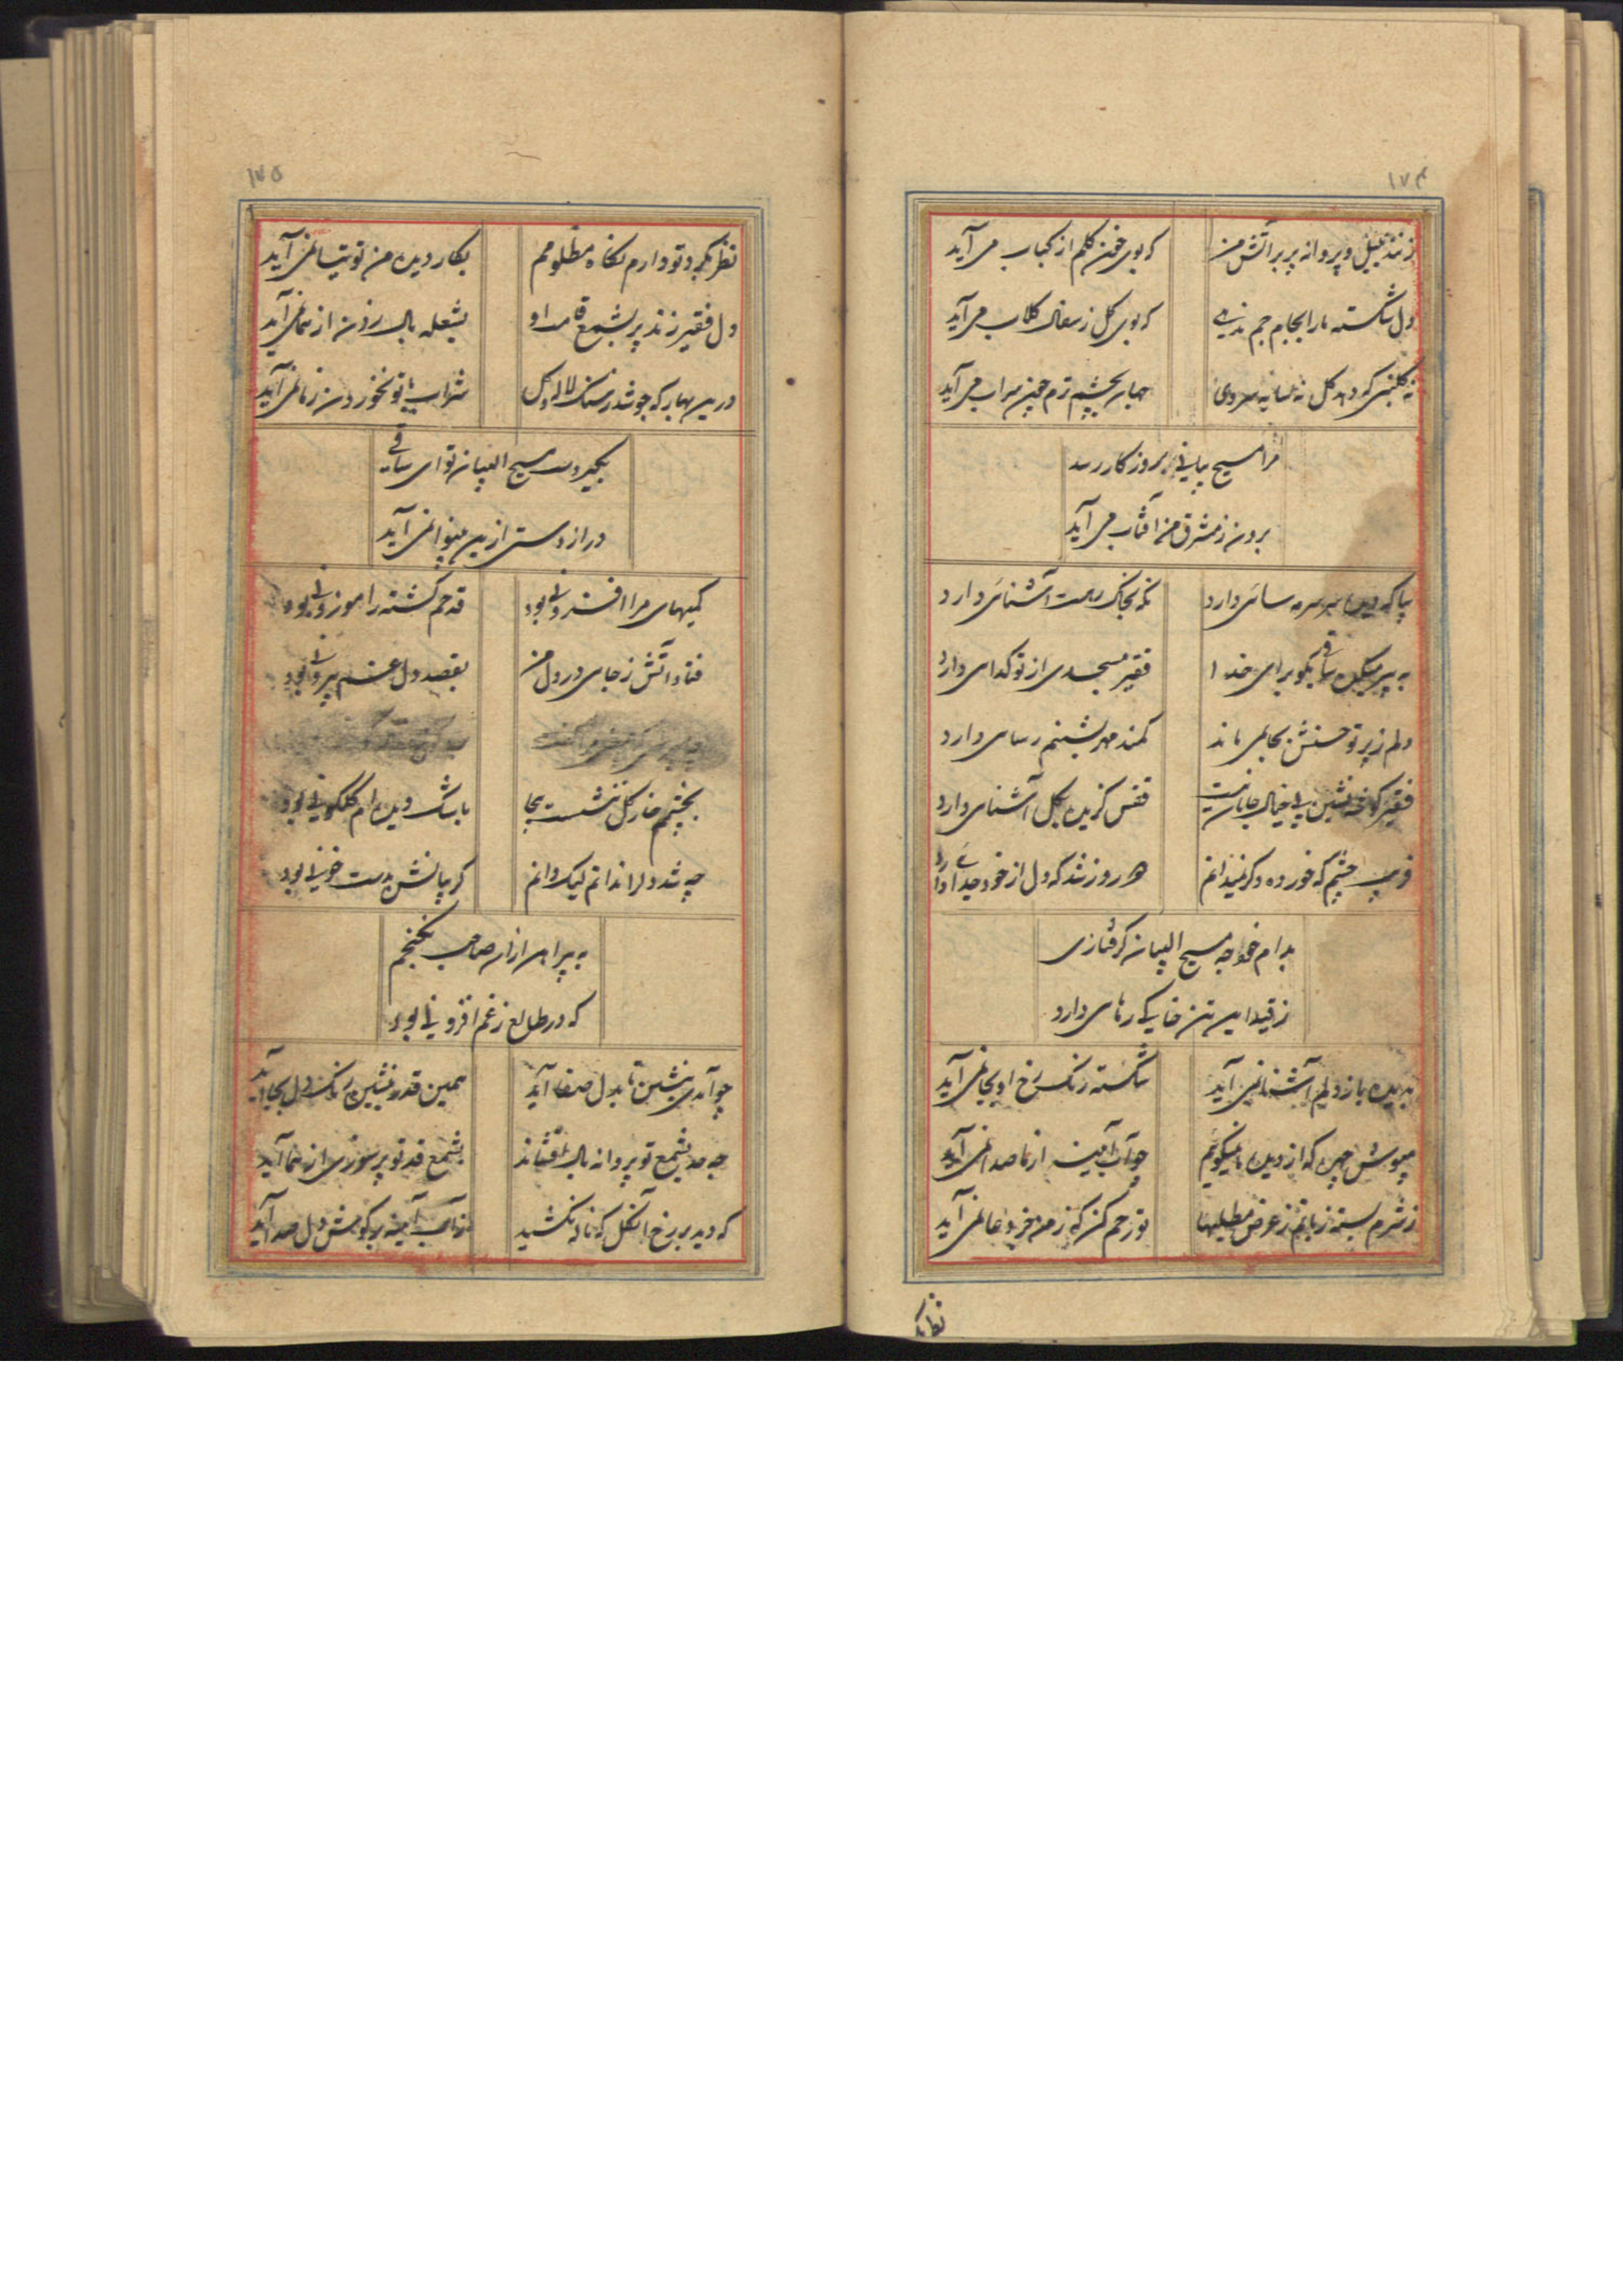 ۱۷۴
زنند بلبل و پروانه پر بر آتش من
که بوی خون گلم از کباب می آید
دل شکسته ما را بجام جم ندهی
که بوی گل ز سفال گلاب می آید
بهار بچشم ترم چون سراب می آید
مرا مسیح بیانی بروز کار رسد
برون ز مشرق من آفتاب می آید
بیا که دیده سر سرمه سائی دارد
نگه بخاک رهت آشنائی دارد
به پیر میکده ساقی بگو برای خدا
فقیر مسجدی از تو گدای دارد
دلم ز پرتو حسنش بجا نمی ماند
کمند مهر بشبنم رسای دارد
فقیر گوشه نشین بی خیال جانان نیست
قفس گزیده بگل آشنای دارد
فریب چشم که خورده دگر نمیدانم
دو روز شد که دل از خود جدای دارد
بدام خواجه مسیح البیان گرفتاری
ز قید این تن خاکی رهای دارد
بدیده باز دلم آشنا نمی آید
شکسته رنگ رخ او بجا نمی آید
مپوش چهره که از دیده ها نمیگویم
چو آب آینه از ما صدا نمی آید
ز شرم بسته زبانم ز عرض مطلبها
تو رحم کن که ز من جز دعا نمی آید
نظر بگرد
۱۷۵
نظر بگرد تو دارم نگاه مظلومم
بکار دیده من توتیا نمی آید
دل فقیر زند پر بشمع قامت او
بشعله بال زدن از هما نمی آید
درین بهار که جوشد ز سنگ لاله و گل
شراب بی تو نخوردن ز ما نمی آید
بگیر دست مسیح البیان تو ای ساقی
دراز دستی ازین بینوا نمی آید
کمیهای مرا افزونی بود
قد خم گشته را موزونی بود
فتاد آتش ز جای در دل من
بقصد دل غمم بیرونی بود
بچشم خار گل ننشست بیجا
باشک دیده ام گلگونی بود
چه شد دلرا ندانم لیک دانم
گریبانش بدست خونی بود
به پیراهن ازان صاحب نگنجم
که در طالع ز غم افزونی بود
چو آمدی بنشین تا بدل صفا آید
همین قدر بنشین رنگ دل بجا آید
چه شد بشمع تو پروانه بال افشاند
بشمع قد تو پر سوزی از هما آید
که دید بر رخ آن گل که ناله نکشید
ز آب آینه بر گوش دل صدا آید